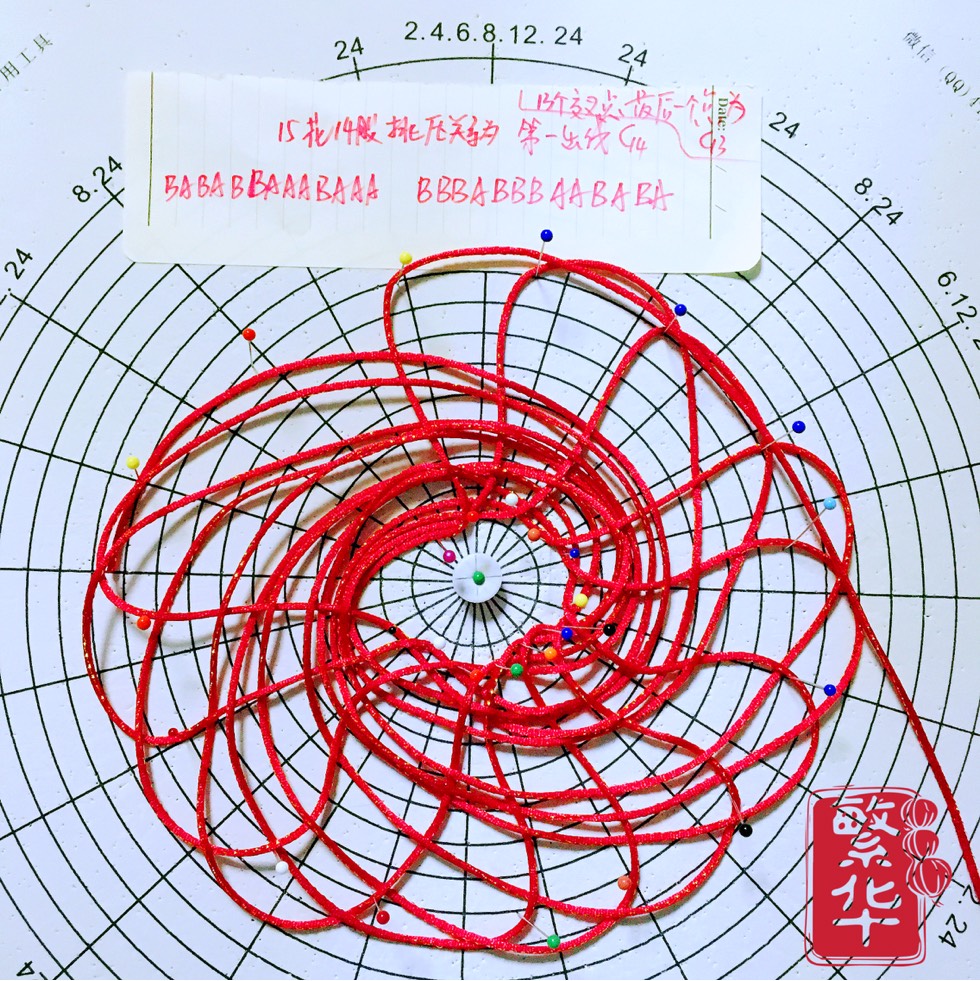 2.4.6.8.12. 24
24
24
用工具
微信（QQ）
13个交叉点 最后一个点为
15花14股 挑压关系为 第一出线 G14 G13
Date:
24
BABABBAAABAAA BBBABBBAABABA
8.24
8.24
24
6.12.
繁华
24